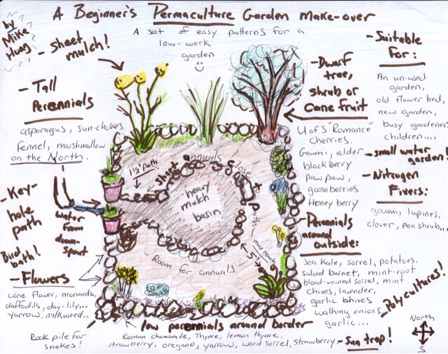 by
Mike
Hoag
A Beginner's Permaculture Garden Make-over
A set of easy patterns for a
low-work
garden
- Sheet
mulch!
- Tall
Perennials
asparagus, sun-chokes
fennel, marshmallow
on the North.
- Key-
hole
path
water
from
down-
spout
- Flowers
cone flower, monarda,
daffodils, day-lily...
yarrow, milkweed...
Rock pile for
snakes!
1 1/2' path
sheet
annuals
heavy
mulch
basin
Room for annuals
5'
low perennials around border
Roman chamomile, thyme, lemon thyme,
strawberry, oregano, yarrow, wood sorrel, strawberry
- Dwarf
tree,
shrub or
Cane Fruit
U of S "Romance"
cherries,
Goumi, elder
blackberry
paw paw,
gooseberries
Honey berry
Perennials
around
outside:
Sea Kale, sorrel, potatoes,
salad burnet, mint-root
blood-veined sorrel, mint
chives, lavender,
garlic chives
walking onions
garlic...
- Suitable
For:
An unused
garden,
old flower bed,
new garden,
busy gardener
children...
- small water garden!
- Nitrogen
Fixers:
goumi, lupines,
clover, pea shrub...
Polycultures!
- Sun trap!
North
S